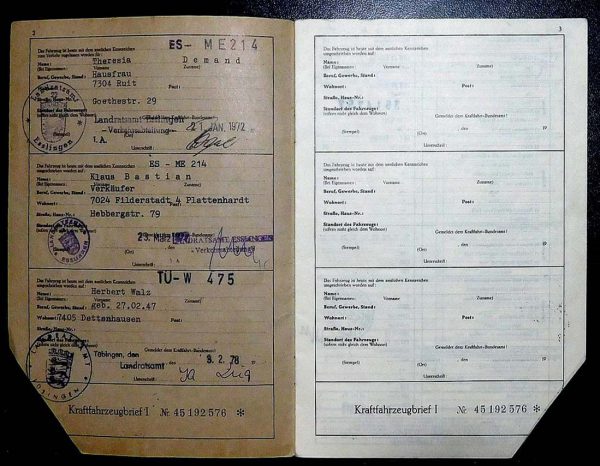 3
Das Fahrzeug ist heute mit dem amtlichen Kennzeichen
ES- ME 214
zum Verkehr zugelassen worden für:
Name: Theresia Demand
(Bei Eigennamen: Vorname Zuname)
Beruf, Gewerbe, Stand: Hausfrau
Wohnort: 7304 Ruit Post:
Straße, Haus-Nr.: Goethestr. 29
Standort des Fahrzeugs:
(sofern nicht gleich dem Wohnort)
Gemeldet dem Kraftfahrt-Bundesamt!
Landratsamt Esslingen
-Verkehrsabteilung-
21. JAN. 1972
I.A.
(Ort)
Unterschrift:
Landratsamt
Esslingen
Das Fahrzeug ist heute mit dem amtlichen Kennzeichen
ES - ME 214
umgeschrieben worden auf:
Name: Klaus Bastian
(Bei Eigennamen: Vorname Zuname)
Verkäufer
Beruf, Gewerbe, Stand:
7024 Filderstadt 4 Plattenhardt
Wohnort: Post:
Hebbergstr. 79
Straße, Haus-Nr.:
LANDRATSAMT ESSLINGEN
-Verkehrsabteilung-
(Ort)
Das Fahrzeug ist heute mit dem amtlichen Kennzeichen
TÜ-W 475
umgeschrieben worden auf:
Name: Herbert Walz
(Bei Eigennamen: Vorname Zuname)
Beruf, Gewerbe, Stand: geb. 27.02.47
Wohnort: 7405 Dettenhausen Post:
Straße, Haus-Nr.:
Standort des Fahrzeugs:
(sofern nicht gleich dem Wohnort)
Gemeldet dem Kraftfahrt-Bundesamt!
Tübingen, den 9. 2. 78
Landratsamt
Unterschrift:
LANDRATSAMT
TÜBINGEN
Kraftfahrzeugbrief I № 45 192 576 *
3
Das Fahrzeug ist heute mit dem amtlichen Kennzeichen
umgeschrieben worden auf:
Name:
(Bei Eigennamen: Vorname Zuname)
Beruf, Gewerbe, Stand:
Wohnort: Post:
Straße, Haus-Nr.:
Standort des Fahrzeugs:
(sofern nicht gleich dem Wohnort)
Gemeldet dem Kraftfahrt-Bundesamt!
, den 19
(Stempel) (Ort)
Unterschrift:
Das Fahrzeug ist heute mit dem amtlichen Kennzeichen
umgeschrieben worden auf:
Name:
(Bei Eigennamen: Vorname Zuname)
Beruf, Gewerbe, Stand:
Wohnort: Post:
Straße, Haus-Nr.:
Standort des Fahrzeugs:
(sofern nicht gleich dem Wohnort)
Gemeldet dem Kraftfahrt-Bundesamt!
, den 19
(Stempel) (Ort)
Unterschrift:
Das Fahrzeug ist heute mit dem amtlichen Kennzeichen
umgeschrieben worden auf:
Name:
(Bei Eigennamen: Vorname Zuname)
Beruf, Gewerbe, Stand:
Wohnort: Post:
Straße, Haus-Nr.:
Standort des Fahrzeugs:
(sofern nicht gleich dem Wohnort)
Gemeldet dem Kraftfahrt-Bundesamt!
, den 19
(Stempel) (Ort)
Unterschrift:
Kraftfahrzeugbrief I № 45 192 576 *